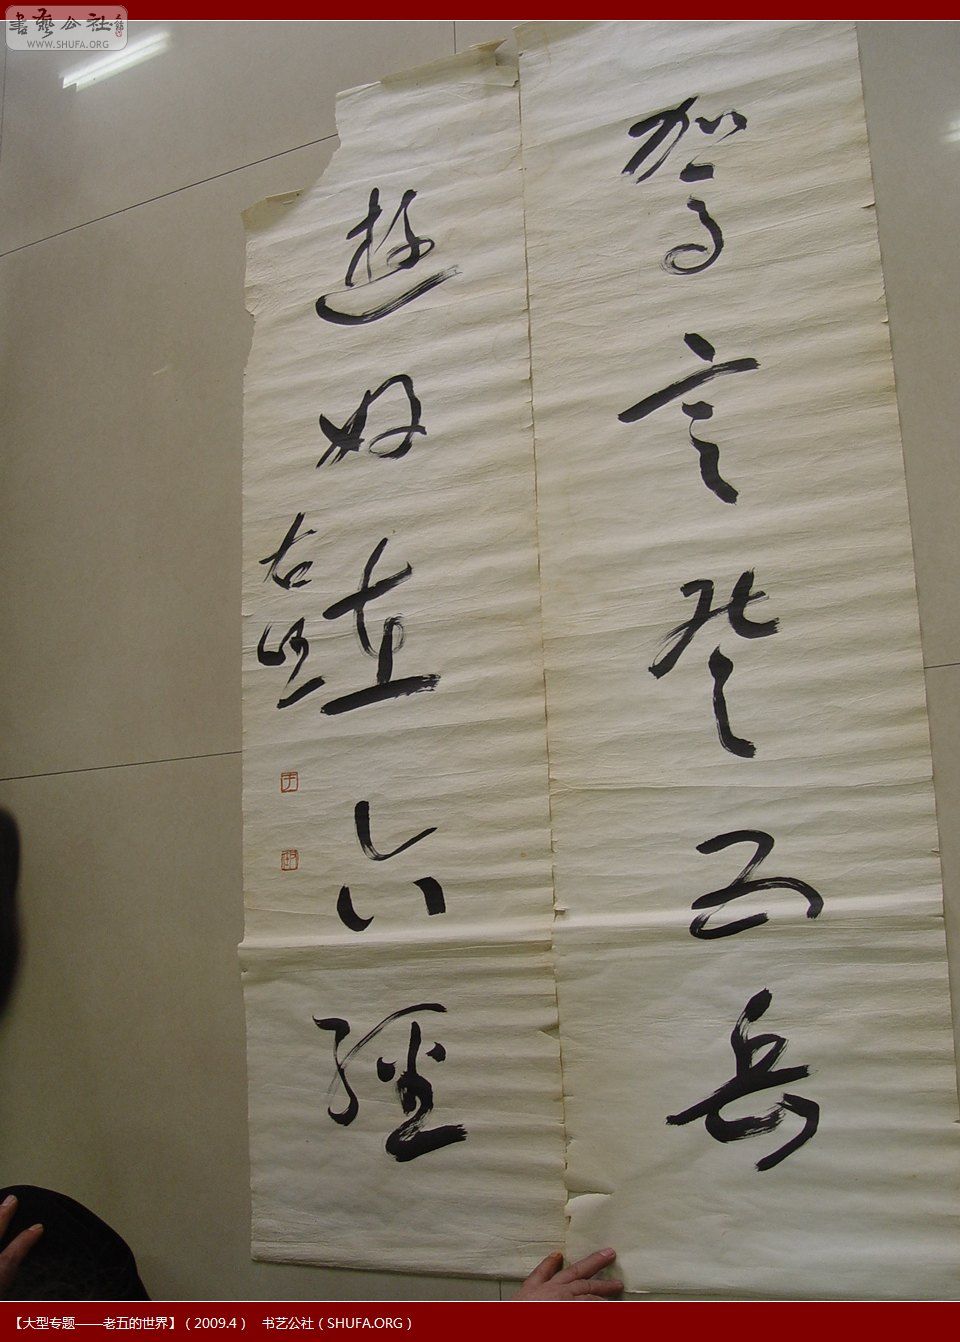 書藝公社
WWW.SHUFA.ORG
驾言登五岳
游好在六經
右任
【大型专题——老五的世界】（2009.4） 书艺公社（SHUFA.ORG）